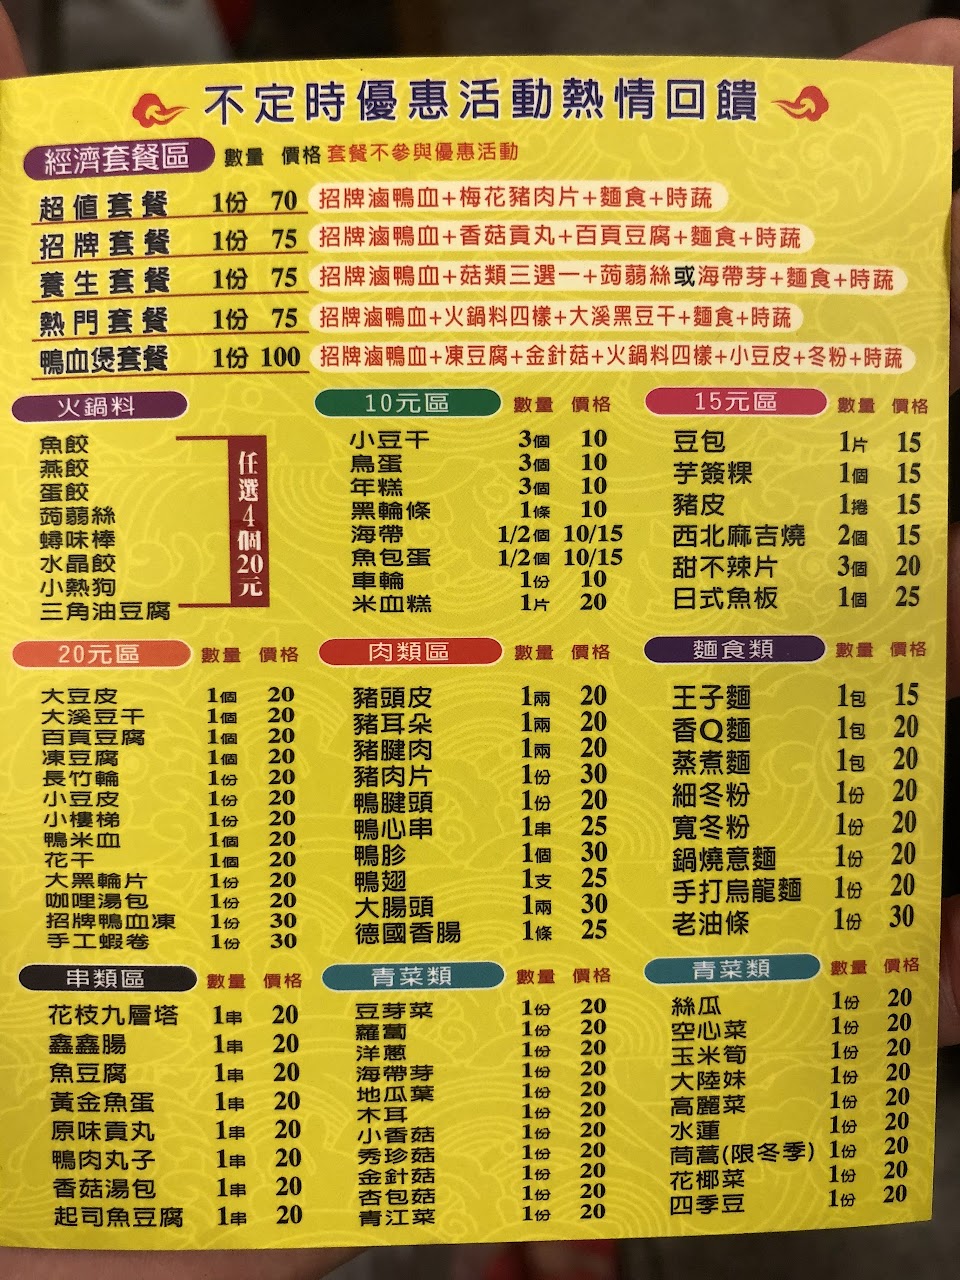 不定時優惠活動熱情回饋
經濟套餐區 數量 價格 套餐不參與優惠活動
超值套餐 1份 70 招牌滷鴨血+梅花豬肉片+麵食+時蔬
招牌套餐 1份 75 招牌滷鴨血+香菇貢丸+百頁豆腐+麵食+時蔬
養生套餐 1份 75 招牌滷鴨血+菇類三選一+蒟蒻絲或海帶芽+麵食+時蔬
熱門套餐 1份 75 招牌滷鴨血+火鍋料四樣+大溪黑豆干+麵食+時蔬
鴨血煲套餐 1份 100 招牌滷鴨血+凍豆腐+金針菇+火鍋料四樣+小豆皮+冬粉+時蔬
火鍋料
魚餃
燕餃
蛋餃
蒟蒻絲
蟳味棒
水晶餃
小熱狗
三角油豆腐
任選4個20元
10元區 數量 價格
小豆干 3個 10
鳥蛋 3個 10
年糕 3個 10
黑輪條 1條 10
海帶 1/2個 10/15
魚包蛋 1/2個 10/15
車輪 1份 10
米血糕 1片 20
15元區 數量 價格
豆包 1片 15
芋簽粿 1個 15
豬皮 1捲 15
西北麻吉燒 2個 15
甜不辣片 3個 20
日式魚板 1個 25
20元區 數量 價格
大豆皮 1個 20
大溪豆干 1個 20
百頁豆腐 1個 20
凍豆腐 1個 20
長竹輪 1份 20
小豆皮 1份 20
小樓梯 1份 20
鴨米血 1個 20
花干 1個 20
大黑輪片 1份 20
咖哩湯包 1份 20
招牌鴨血凍 1份 30
手工蝦卷 1份 30
肉類區 數量 價格
豬頭皮 1兩 20
豬耳朵 1兩 20
豬腱肉 1兩 20
豬肉片 1份 30
鴨腱頭 1份 20
鴨心串 1串 25
鴨胗 1個 30
鴨翅 1支 25
大腸頭 1兩 30
德國香腸 1條 25
麵食類 數量 價格
王子麵 1包 15
香Q麵 1包 20
蒸煮麵 1包 20
細冬粉 1份 20
寬冬粉 1份 20
鍋燒意麵 1份 20
手打烏龍麵 1份 20
老油條 1份 30
串類區 數量 價格
花枝九層塔 1串 20
鑫鑫腸 1串 20
魚豆腐 1串 20
黃金魚蛋 1串 20
原味貢丸 1串 20
鴨肉丸子 1串 20
香菇湯包 1串 20
起司魚豆腐 1串 20
青菜類 數量 價格
豆芽菜 1份 20
蘿蔔 1份 20
洋蔥 1份 20
海帶芽 1份 20
地瓜葉 1份 20
木耳 1份 20
小香菇 1份 20
秀珍菇 1份 20
金針菇 1份 20
杏包菇 1份 20
青江菜 1份 20
青菜類 數量 價格
絲瓜 1份 20
空心菜 1份 20
玉米筍 1份 20
大陸妹 1份 20
高麗菜 1份 20
水蓮 1份 20
茼蒿(限冬季) 1份 20
花椰菜 1份 20
四季豆 1份 20